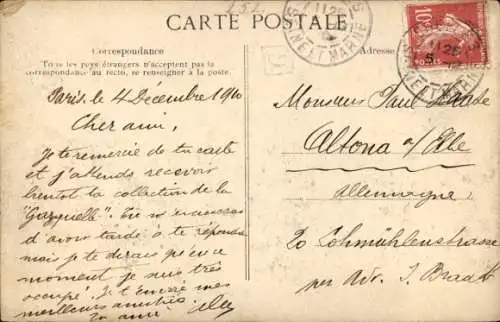 252
CARTE POSTALE
Correspondance
Tous les pays étrangers n'acceptent pas la
correspondance au recto, se renseigner à la poste.
Adresse
Paris, le 4 Décembre 1910
Cher ami,
Je te remercie de ta carte
et j'attends recevoir
bientôt la collection de la
d'avoir tardé à te répondre
mais je te dirais qu'en ce
moment je suis très
occupé. Je t'envoie mes
meilleures amitiés.
Ton ami
Monsieur Paul
Altona a/Elbe
Allemagne
20 Lohmühlenstrasse
per Adr. J. Braasch
SEINE ET MARNE
10
POSTES
SEINE ET MARNE